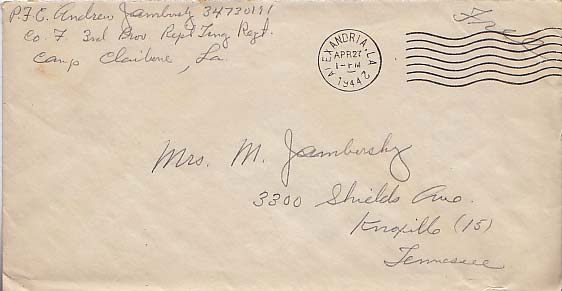 P.F.C. Andrew Jambersky 34730191
Co. F. 3rd Prov Repl Tng Regt.
Camp Claiborne, La.
ALEXANDRIA, LA
APR 27
1944
Free
Mrs. M. Jambersky
3300 Shields Ave.
Knoxville (15)
Tennessee